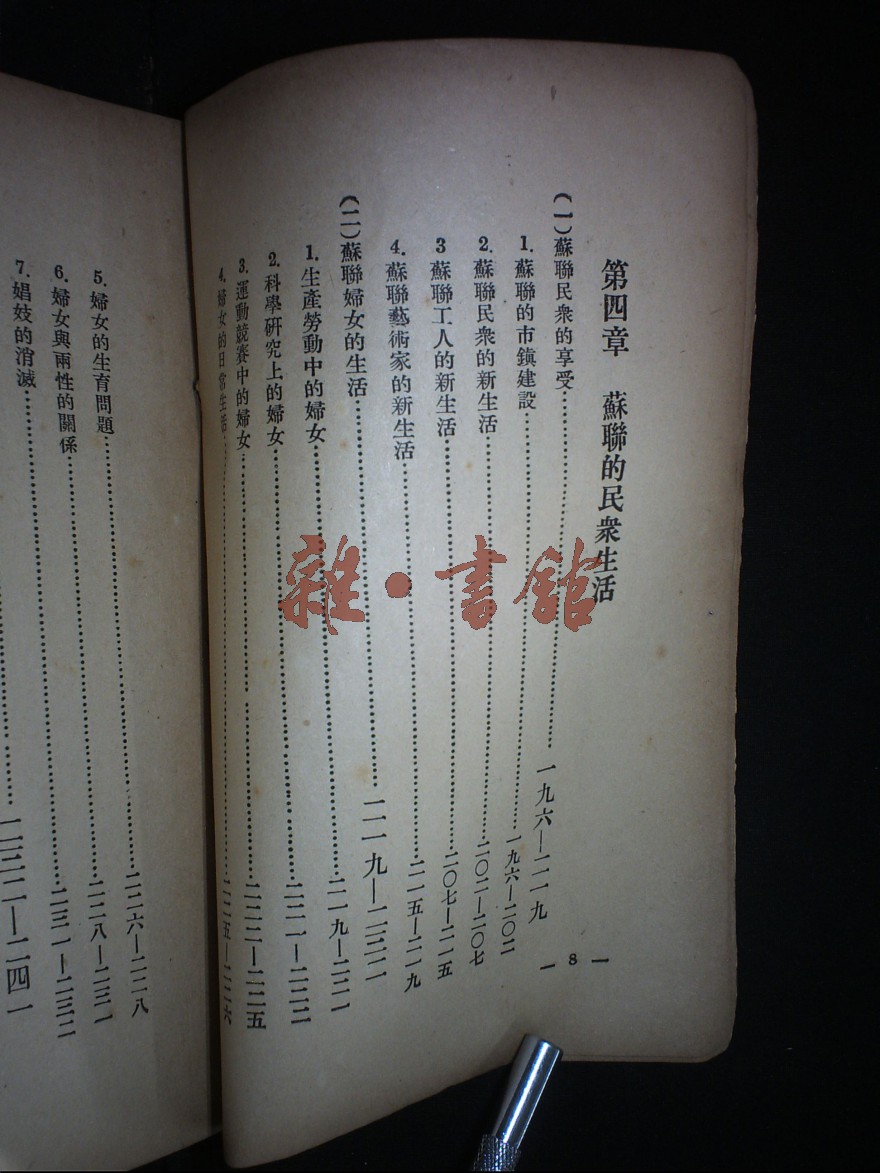 第四章　蘇聯的民衆生活
(一)蘇聯民衆的享受……一九六—二一九
1. 蘇聯的市鎮建設……一九六—二〇二
2. 蘇聯民衆的新生活……二〇二—二〇七
3 蘇聯工人的新生活……二〇七—二一五
4. 蘇聯藝術家的新生活……二一五—二一九
(二)蘇聯婦女的生活……二一九—二三二
1. 生產勞動中的婦女……二一九—二二一
2. 科學研究上的婦女……二二一—二二二
3. 運動競賽中的婦女……二二二—二二五
4. 婦女的日常生活……二二五—二二六
— 8 —
5. 婦女的生育問題……二二六—二二八
6. 婦女與兩性的關係……二二八—二三一
7. 娼妓的消滅……二三一—二三二
……二三二—二四一
雜·書館